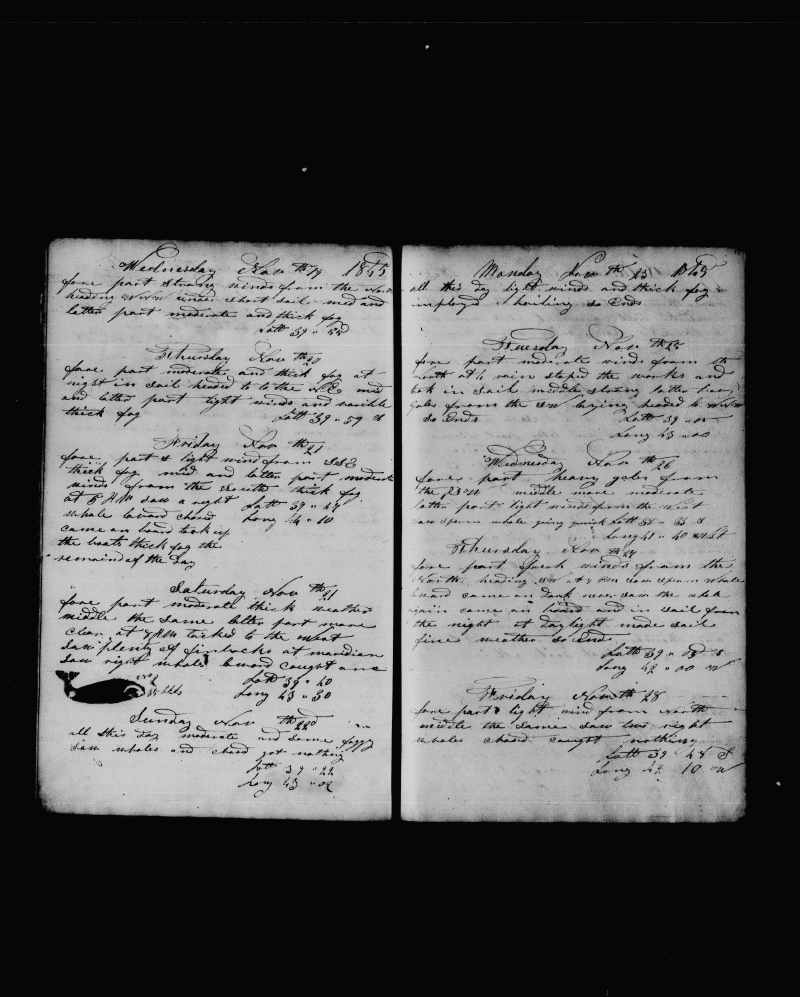 Wednesday Nov th 19 1845
fore part strong winds from the
heading WNW under short sail mid and
latter part moderate and thick fog
Latt 39 " 52
Thursday Nov th 20
fore part moderate and thick fog at
night in sail headed to the NE mid
and latter part light winds and varible
thick fog Latt 39 " 59 S
Friday Nov th 21
fore part light wind from SSE
thick fog mid and latter part moderate
winds from the South thick fog
at 5 AM saw a right Latt 39 " 48
whale loward chasd Long 44 " 10
came on board took up
the boats thick fog the
remaind of the Day
Saturday Nov th 21
fore part moderate thick weather
middle the same latter part more
clear at 8 AM tacked to the West
saw plenty of finbacks at maridian
saw right whale loward caught one
No 2 Latt 39 " 20
bbls Long 43 " 30
Sunday Nov th 22d
all this day moderate and some foggy
saw whales and chasd got nothing
Latt 39 " 22
Long 43 " 02
Monday Nov th 25 1845
all this day light winds and thick fog
imployed boiling so Ends
Tuersday Nov th 25
fore part moderate wind from the
north at 4 rain stoped the works and
took in sail middle strong latter heavy
gales from the SW laying headed to WNW
so Ends Latt 39 "
Long 43 " 00
Wednesday Nov th 26
fore part heavy gales from
the middle more moderate
latter part light winds from the West
saw sperm whales going quick Latt 38 " 53 S
Long 41 " 40 West
Thursday Nov th 27
fore part fresh winds from the
North heading SW at 4 PM saw sperm whale
loward came on dark never saw the whale
again came on board and in sail from
the night at daylight made sail
fine weather so Ends
Latt 39 " 08 S
Long 42 " 00 W
Friday Nov th 28
fore part light wind from North
middle the same saw two right
whales chasd caught nothing
Latt 39 48 S
Long 42 10 W